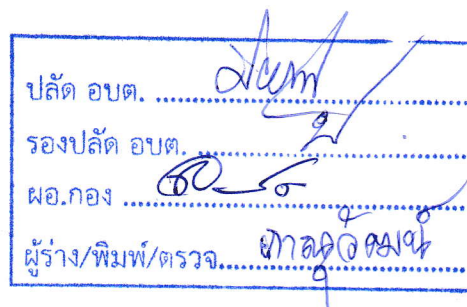 ปลัด อบต. ........................
รองปลัด อบต. ........................
ผอ.กอง ........................
ผู้ร่าง/พิมพ์/ตรวจ........ภาณุวัฒน์